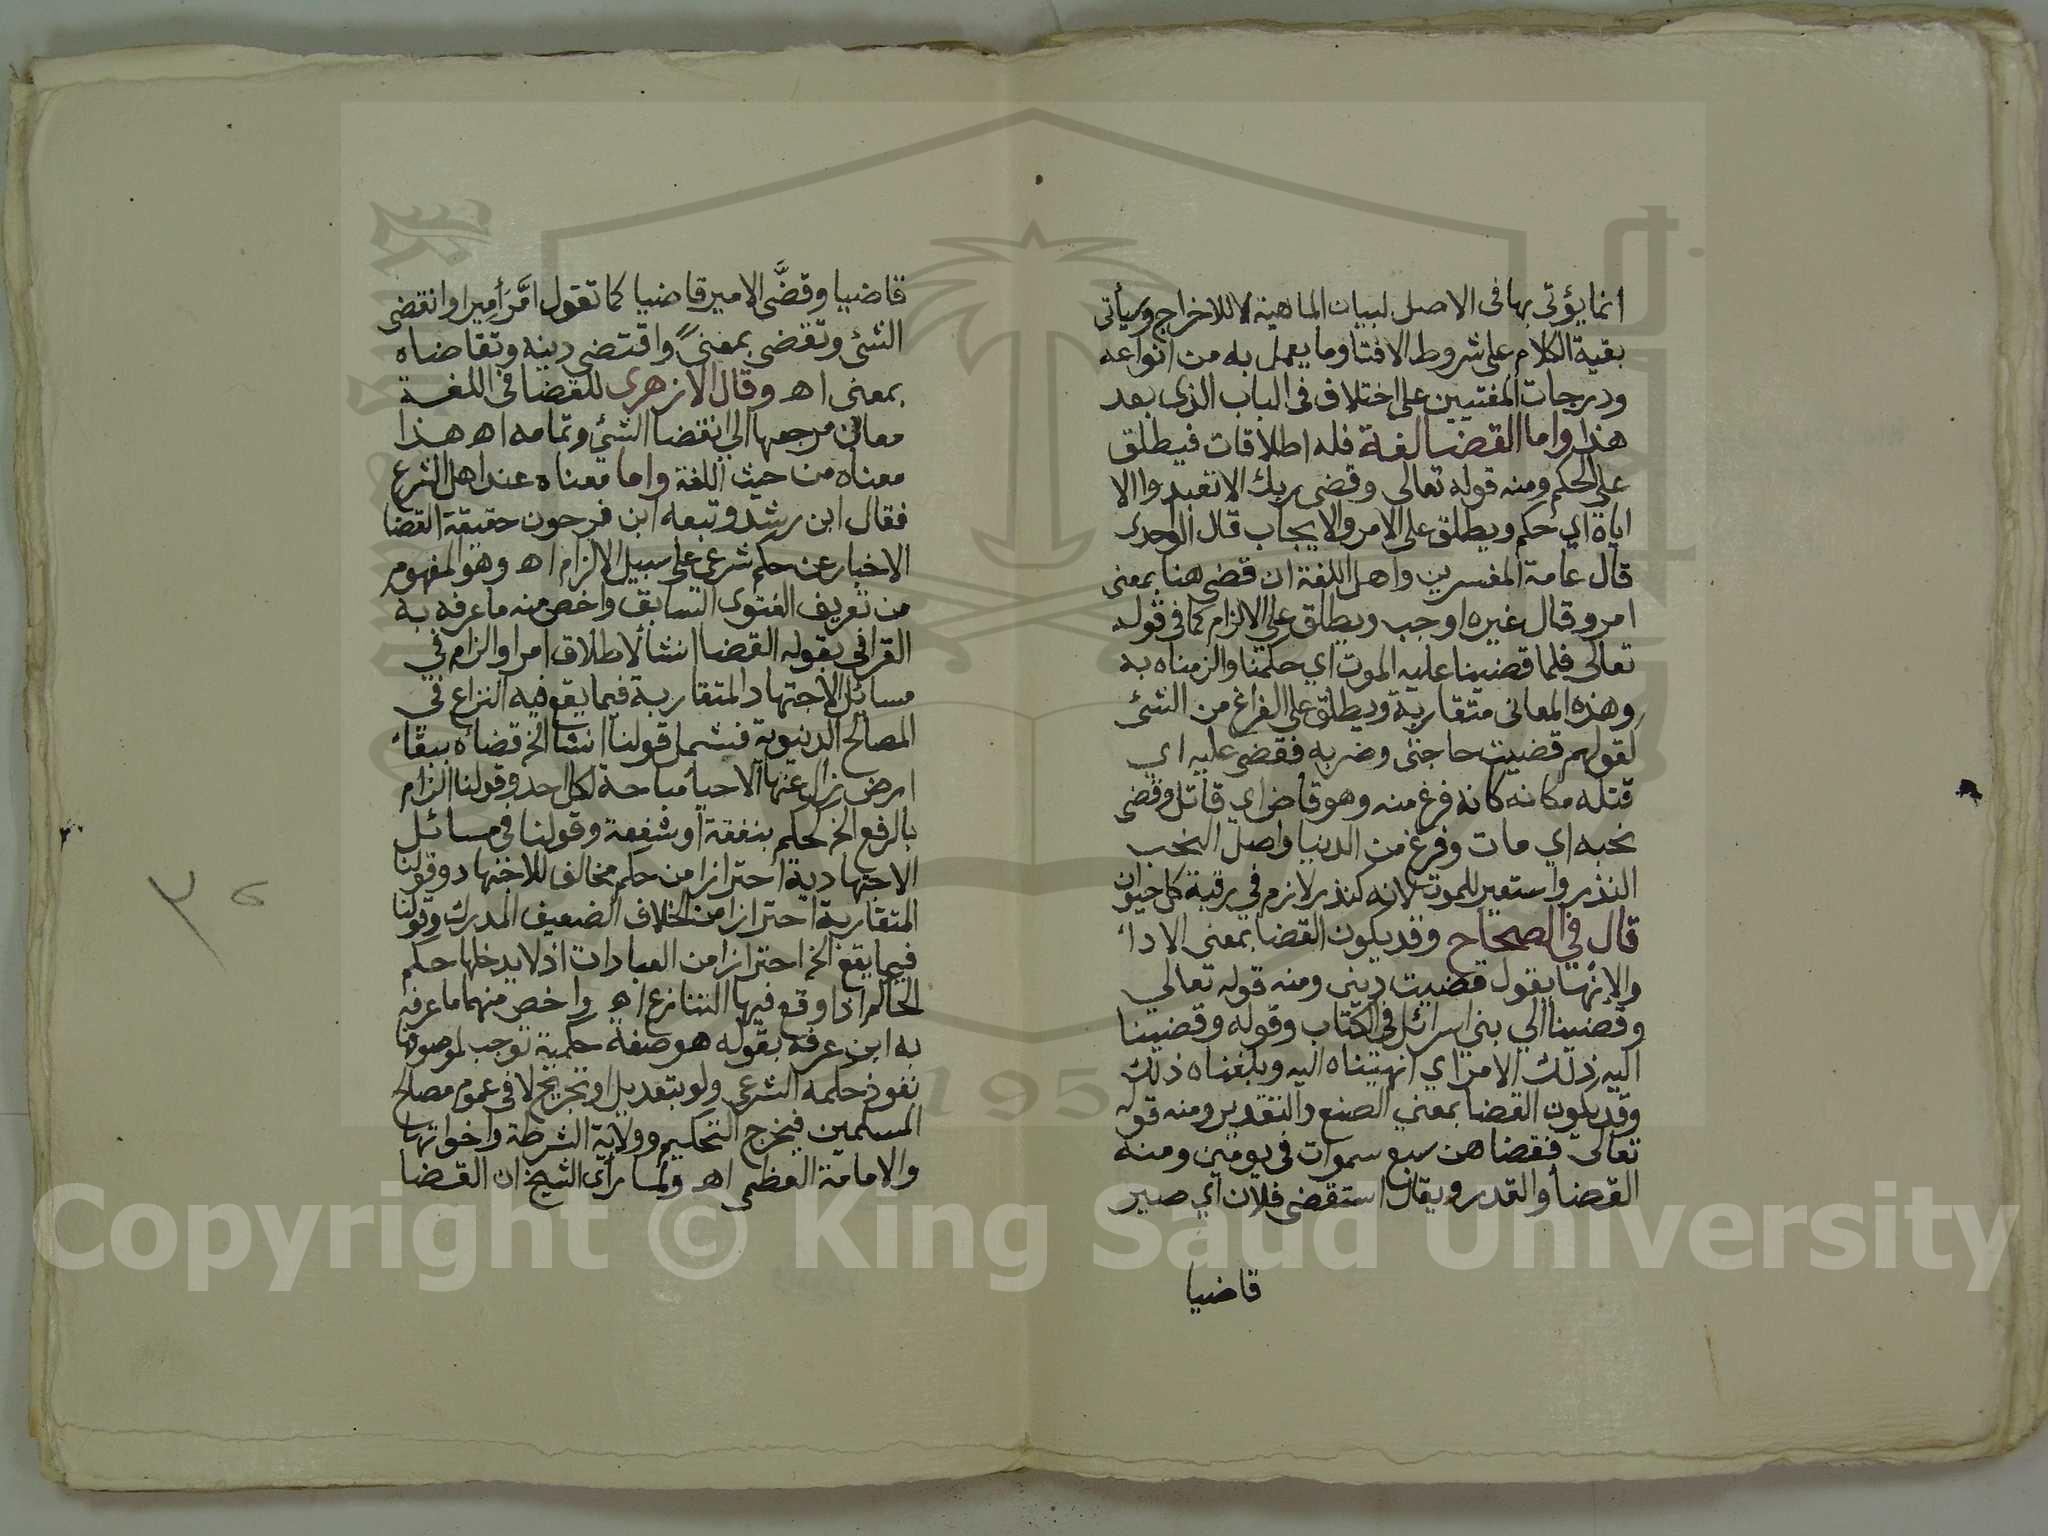 انما يؤتى بها فى الاصل لبيان الماهية لا للاخراج وسيأتى
بقية الكلام على شروط الافتا وما يعمل به من انواعه
ودرجات المفتيين على اختلاف فى الباب الذى بعد
هذا واما القضا لغة فله اطلاقات فيطلق
على الحكم ومنه قوله تعالى وقضى ربك الا تعبدوا الا
اياه اي حكم ويطلق على الامر والايجاب قال الواحدى
قال عامة المفسرين واهل اللغة ان قضى هنا بمعنى
امر وقال غيره اوجب ويطلق على الالزام كما فى قوله
تعالى فلما قضينا عليه الموت اي حكمنا والزمناه به
وهذه المعانى متقاربة ويطلق على الفراغ من الشئ
لقولهم قضيت حاجتى وضربه فقضى عليه اي
قتله مكانه كانه فرغ منه وهو قاض اي قاتل وقضى
نحبه اي مات وفرغ من الدنيا واصل النحب
النذر واستعير للموت لانه كنذر لازم في رقبة كل حيوان
قال في الصحاح وقد يكون القضا بمعنى الادآء
والانها يقول قضيت دينى ومنه قوله تعالي
وقضينا الي بني اسرائل فى الكتاب وقوله وقضينا
اليه ذلك الامر اي انهيناه اليه وبلغناه ذلك
وقد يكون القضا بمعني الصنع والتقدير ومنه قوله
تعالى فقضاهن سبع سموات فى يومين ومنه
القضا والقدر ويقال استقضى فلان اي صير
قاضيا
قاضيا وقضَّى الامير قاضيا كما تقول امَّر أميرا وانقضى
الشئ وتقضى بمعنىً واقتضى دينه وتقاضاه
بمعنى اه وقال الازهرى للقضا فى اللغة
معانى مرجعها الى انقضا الشئ وتمامه اه هذا
معناه من حيث اللغة واما معناه عند اهل الشرع
فقال ابن رشد وتبعه ابن فرحون حقيقة القضا
الاخبار عن حكم شرعي على سبيل الالزام اه وهو المفهوم
من تعريف الفتوى السابق واخص منه ما عرفه به
القرافى بقوله القضا انشا لاطلاق امر او الزام فى
مسائل الاجتهاد المتقاربة فيما يقع فيه النزاع فى
المصالح الدنيوية فشمل قولنا انشا الخ قضاه ببقاء
ارض زال عنها الاحيا مباحة لكل احد وقولنا الزام
بالرفع الخ لحكم بنفقة او شفعة وقولنا فى مسائل
الاجتهادية احترازا من حكم مخالف للاجتهاد وقولنا
المتقاربة احترازا من الخلاف الضعيف المدرك وقولنا
فيما يقع الخ احترازا من العبادات اذ لا يدخلها حكم
الحاكم اذا وقع فيها التنازع اه واخص منهما ما عرفه
به ابن عرفة بقوله هو صفة حكمية توجب لموصوفها
نفوذ حكمه الشرعى ولو بتعديل او تجريح لا فى عموم مصالح
المسلمين فيخرج التحكيم وولاية الشرطة واخواتها
والامامة العظمى اه ولما رأى الشيخ ان القضا
Copyright © King Saud University